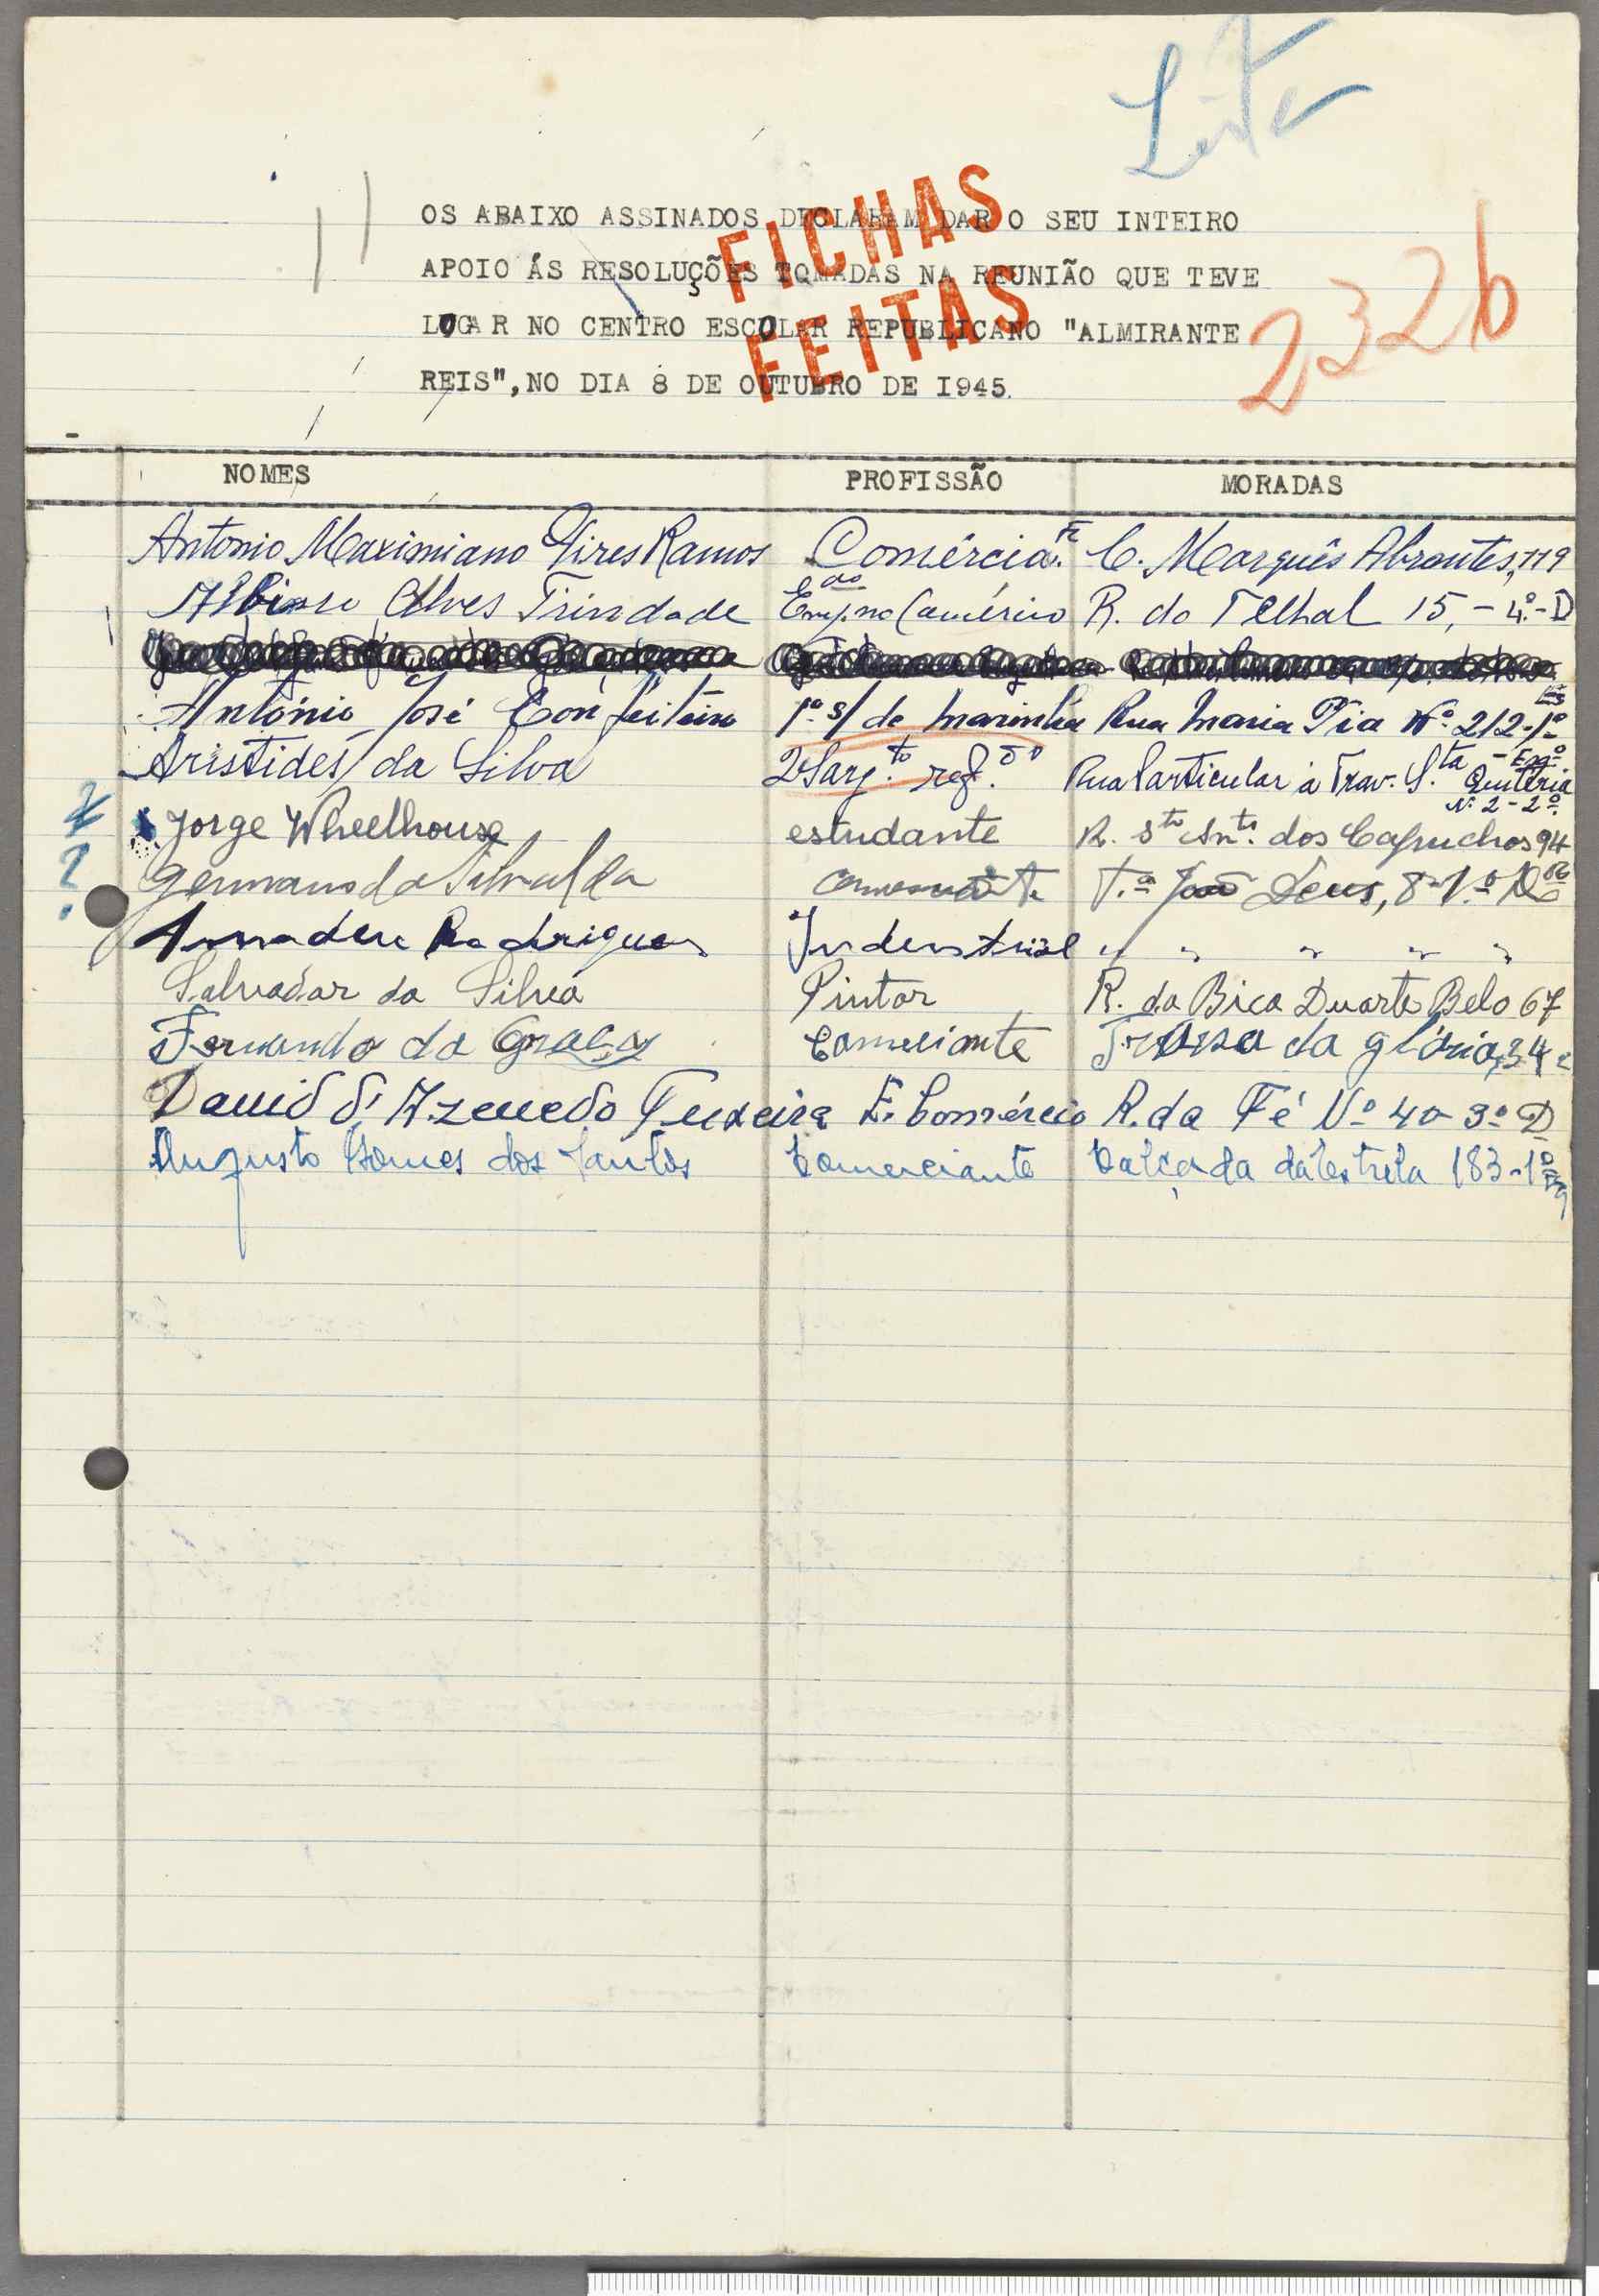 Leite
OS ABAIXO ASSINADOS DECLARAM DAR O SEU INTEIRO
APOIO ÁS RESOLUÇÕES TOMADAS NA REUNIÃO QUE TEVE
LUGAR NO CENTRO ESCOLAR REPUBLICANO "ALMIRANTE
REIS", NO DIA 8 DE OUTUBRO DE 1945.
FICHAS
FEITAS
2326
NOMES PROFISSÃO MORADAS
Antonio Maximiano Pires Ramos Comércia.te C. Marquês Abrantes, 119
Albino Alves Trindade Emp.do no Comércio R. do Telhal 15, - 4.º - D
António José Confeiteiro 1º s/ de marinha Rua Maria Pia Nº 212-1º Esq
Aristides da Silva 2º Sarg.to refº Rua Particular á Trav. S.ta Quitéria
Nº 2 - 2º
Jorge Wheelhouse estudante R. Sto Antº dos Capuchos 94
? Germano da Silva comerciante T.ª João Deus, 8-1.º
Amadeu Rodrigues Industrial " " " " "
Salvador da Silva Pintor R. da Bica Duarte Belo 67
Fernando da Graça Comerciante Travessa da glória, 34
David d'Azevedo Teixeira E. Comércio R. da Fé Nº 40 3º D
Augusto Gomes dos Santos Comerciante Calçada da Estrela 183-1º Esq